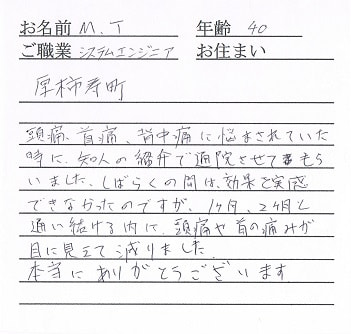 お名前 M.T 年齢 40
ご職業 システムエンジニア お住まい
厚柿寿町
頭痛、首痛、背中痛に悩まされていた
時に、知人の紹介で通院させてもら
いました。しばらくの間は、効果を実感
できなかったのですが、1ヶ月、2ヶ月と
通い続ける内に、頭痛や首の痛みが
目に見えて減りました。
本当にありがとうございます